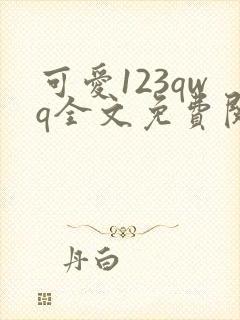 可愛123qw
q全文免費閱
丹白